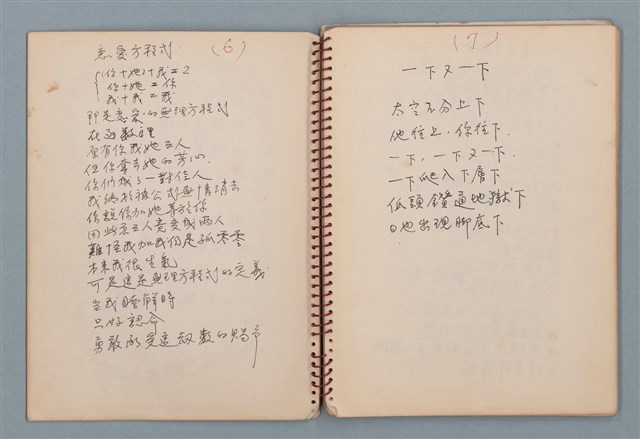 (6)
戀愛方程式
(你+她)+我=2
你+她=你
我+我=我
即是戀愛的無理方程式
在函數裡
原有你我她三人
但你拿去她的芳心
你們成了一對佳人
我終於被公式無情消去
你說你加她等於你
因此三人竟變成兩人
難怪我加我仍是孤零零
本來我很生氣
可是這是無理方程式的定義
當我瞭解時
只好認命
勇敢承受這劫數的賜予
(7)
一下又一下
太空不分上下
他往上,你往下.
一下,一下又一下
一下爬入下層下
低頭鑽通地獄下
日也出現腳底下